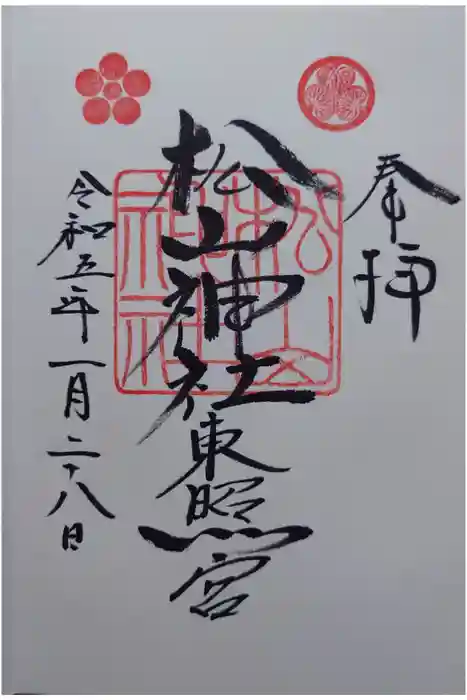 奉拝
松山神社
東照宮
令和五年一月二十八日
松山神社